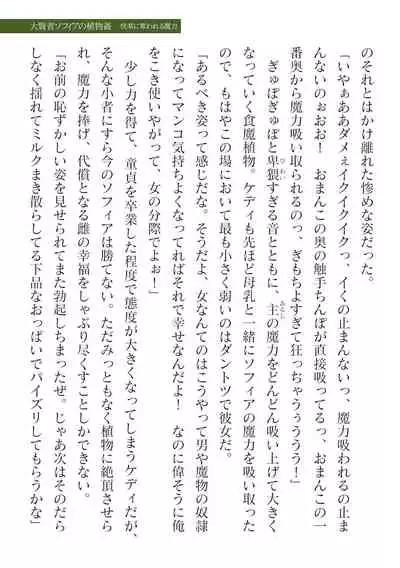 大賢者ソフィアの植物姦　快楽に奪われる魔力
のそれとはかけ離れた惨めな姿だった。
「いやぁああダメぇイクイクイクっ、イくの止まんないっ、魔力吸われるの止ま
んないのぉおお！　おまんこの奥の触手ちんぽが直接吸ってるっ、おまんこの一
番奥から魔力吸い取られるのっ、ぎもちよすぎて狂っちゃうぅうぅう！」
ぎゅぽぎゅぽと卑猥すぎる音とともに、主の魔力をどんどん吸い上げて大きく
なっていく食魔植物。ケディも先ほど母乳と一緒にソフィアの魔力を吸い取った
ので、もはやこの場において最も小さく弱いのはダントツで彼女だ。
「あるべき姿って感じだな。そうだよ、女なんてのはこうやって男や魔物の奴隷
になってマンコ気持ちよくなってればそれで幸せなんだよ！　なのに偉そうに俺
をこき使いやがって、女の分際でよぉ！」
少し力を得て、童貞を卒業した程度で態度が大きくなってしまうケディだが、
そんな小者にすら今のソフィアは勝てない。ただみっともなく植物に絶頂させら
れ、魔力を捧げ、代償となる雌の幸福をしゃぶり尽くすことしかできない。
「お前の恥ずかしい姿を見せられてまた勃起しちまったぜ。じゃあ次はそのだら
しなく揺れてミルクまき散らしてる下品なおっぱいでパイズリしてもらうかな」